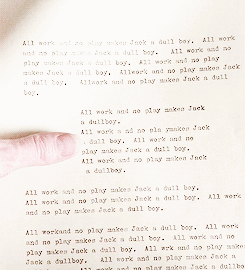 All work and no play makes Jack a dull boy.  All work
and no play makes Jack a dull boy.   All work and no
play makes Jack a dull boy.  All work and no play
makes Jack a dull boy.  Allwork and no play makes
Jack a dull boy.  All work and no play makes Jack a dull
boy.
All work and no play makes Jack
a dullboy.
All work a nd no pla ymakes Jack
a dull boy.  All work and no
play makes Jack a dull boy.
All work and no play makes Jack
a dullboy.
All work and no play makes Jack a dull boy,
All work and no play makes Jack a dull boy.  All work
and no play makes Jack a dull boy.
All workand no play makes Jack a dull boy.  All work
and no play makes Jack a dull boy.  All work and no
play makes Jack a dull boy.  All wrk and no play makes
Jack a dullboy.  All work and no play makes Jack a